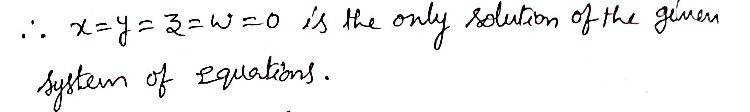 ∴ x=y=z=w=0 is the only solution of the given
system of equations.